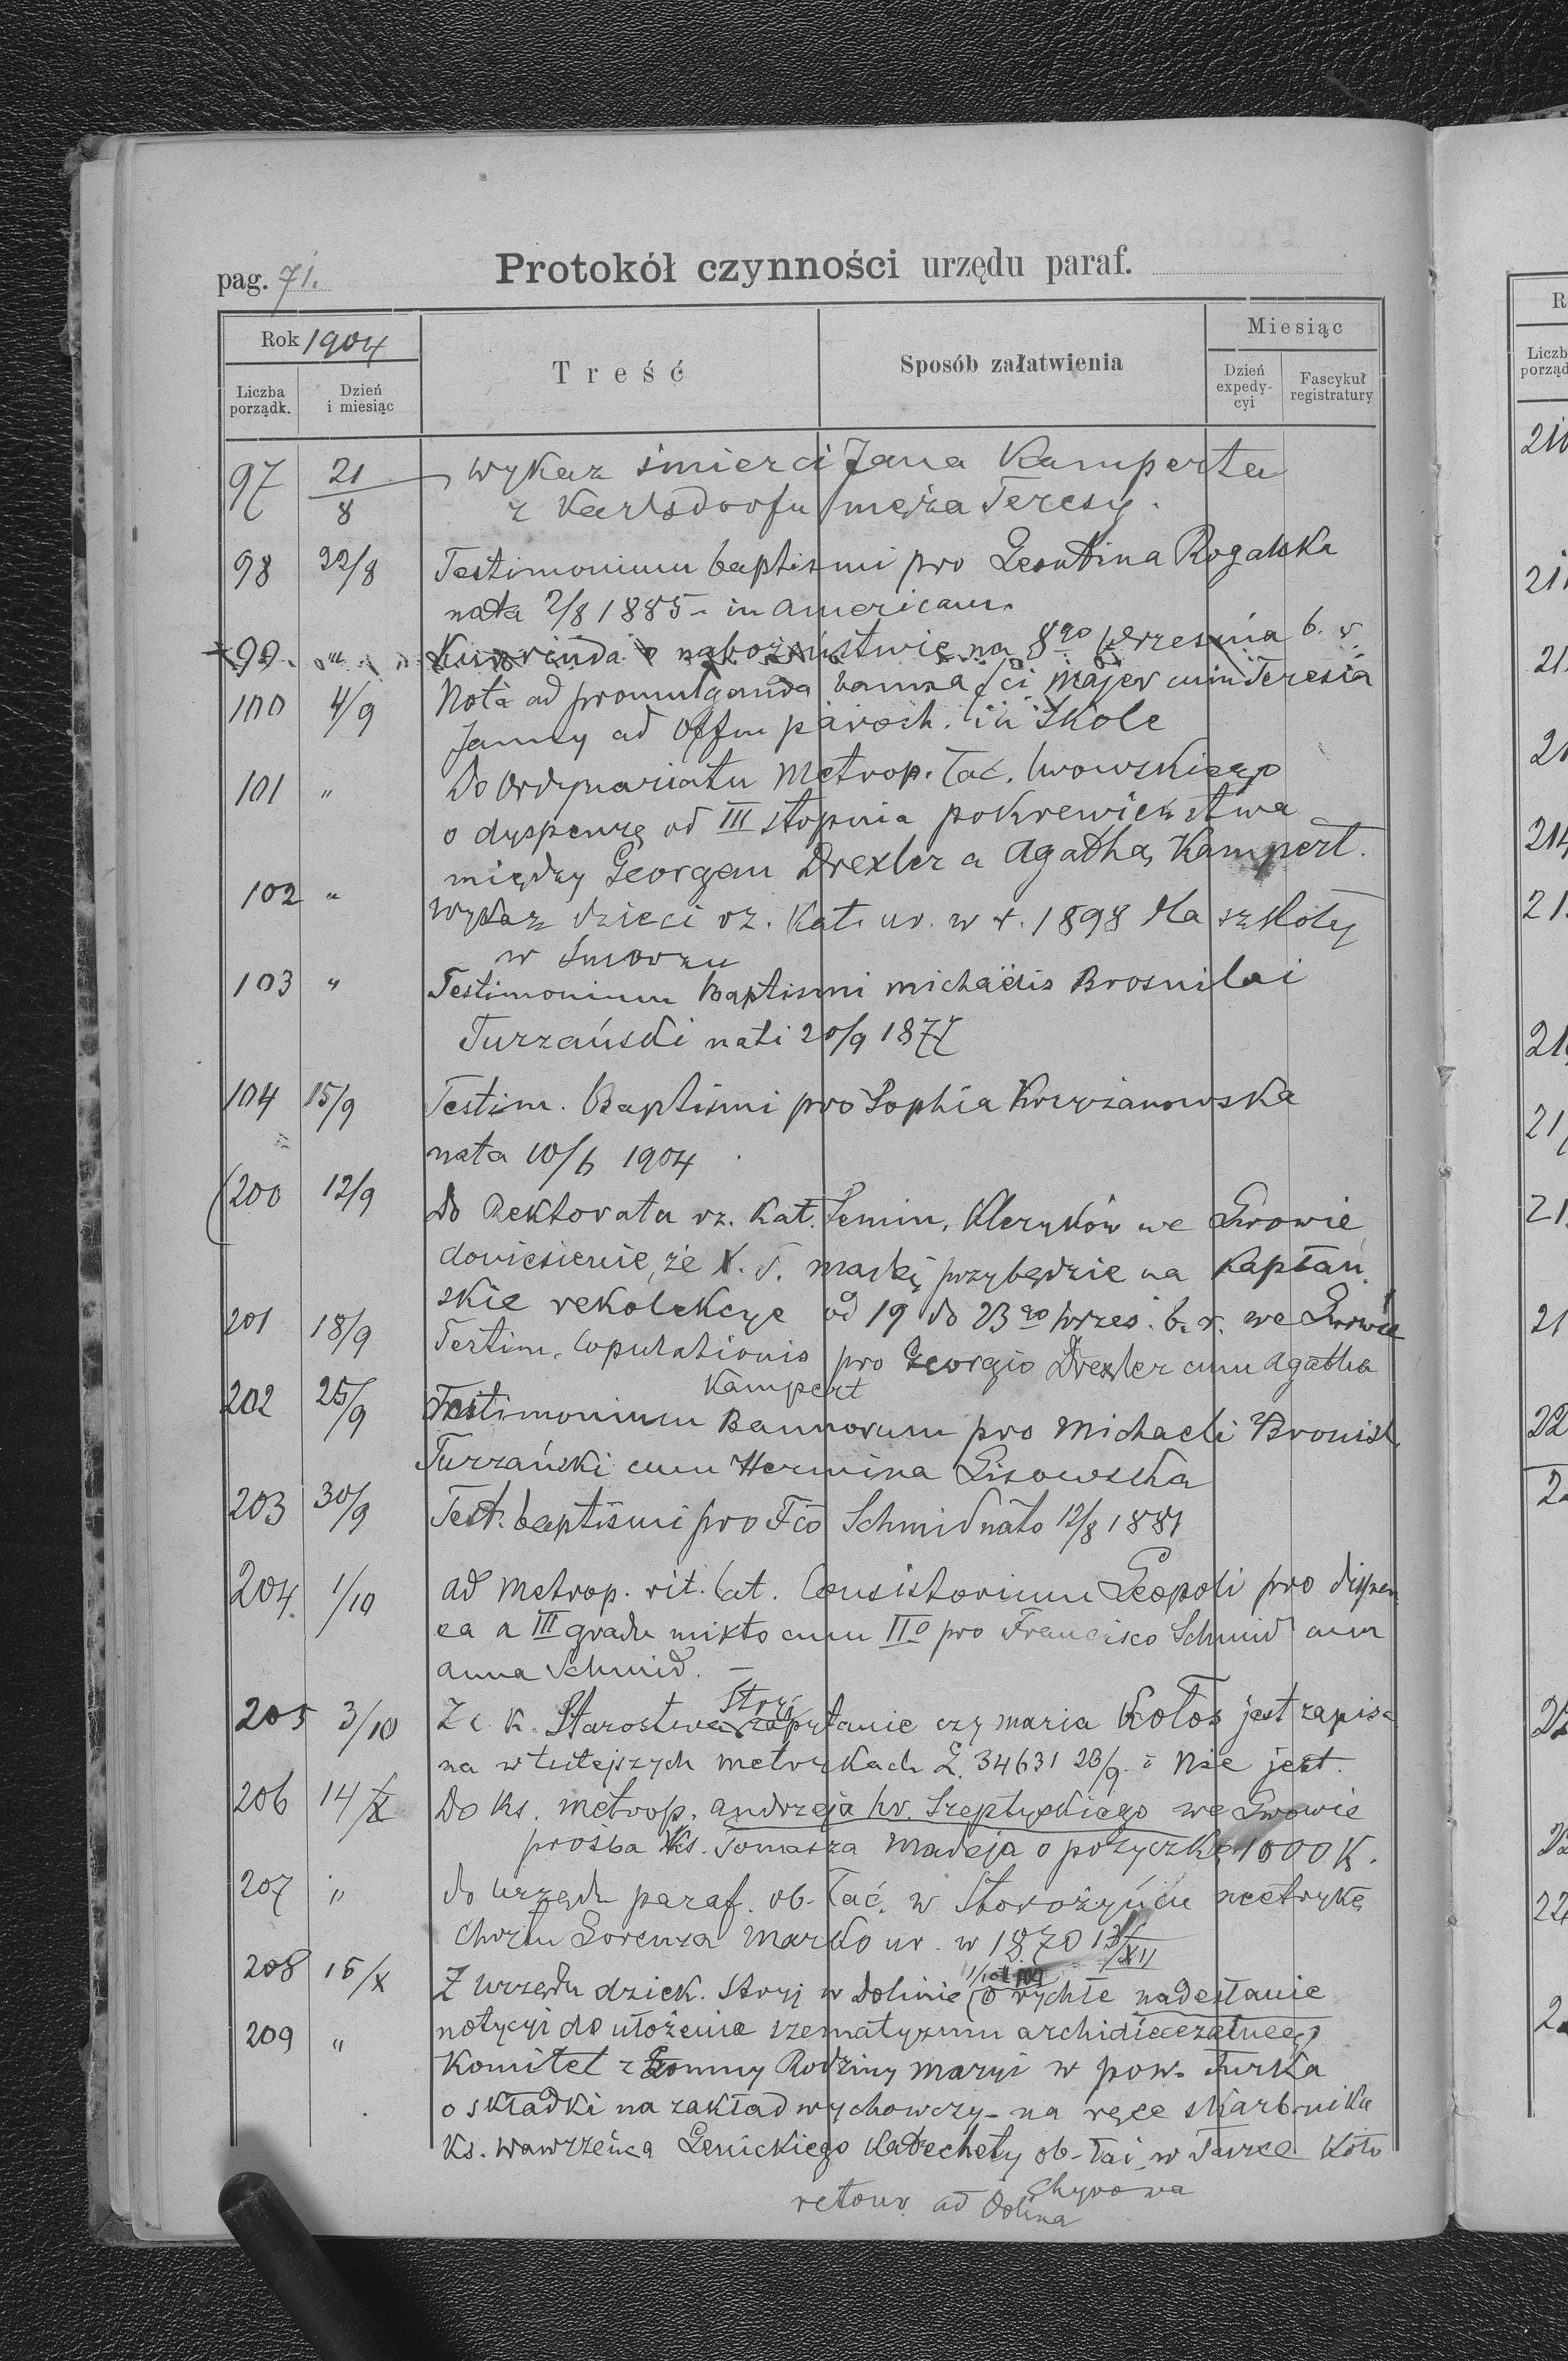 pag. 71.
Protokół czynności urzędu paraf.
Rok 1904
Treść
Sposób załatwienia
Miesiąc
Liczba porządk.
Dzień i miesiąc
Dzień expedycyi
Fascykuł registratury
97 21/8 wykaz śmierci Jana Kamperta
z Karlsdorfu męża Teresy.
98 22/8 Testimonium baptismi pro Leontina Rogalska
nata 2/8 1885 - in americam.
99 " Kurenda o nabożeństwie na 8go Września b. r.
100 4/9 Nota ad promulganda banna majer cum Teresia
ad Offm paroch. in Skole
101 " Do Ordynariatu Metrop. łać. lwowskiego
o dyspenzę od III stopnia pokrewieństwa
między Georgeu Drexler a Agathą Kampert.
102 " Wykaz dzieci rz. kat. ur. w r. 1898 dla szkoły
w Smorzu
103 " Testimonium Baptismi michaëlis Bronislai
Turzański nati 20/9 1877
104 15/9 Testim. Baptismi pro Sophia Krzyżanowska
nata 10/6 1904
200 12/9 Do Rektoratu rz. kat. Semin. Kleryków we Lwowie
doniesienie, że X. T. madej przybędzie na kapłań-
skie rekolekcye od 19 do 23go wrześ. b. r. we Lwowie
201 18/9 Testim. Copulationis pro Georgio Drexler cum Agatha
Kampert
202 25/9 Testimonium Bannorum pro Michaeli Bronisl.
Turzański cum Hermina Lisowska
203 30/9 Test. baptismi pro Fco Schmid nato 12/8 1881
204. 1/10 ad metrop. rit. lat. Consistorium Leopoli pro dispen
sa a III gradu mixto cum IIo pro Francisco Schmid cum
anna Schmid. —
205 3/10 Z c. k. Starostwa Stryj zapytanie czy maria Kołos jest zapisa
na w tutejszych metrykach L. 34631 23/9. - Nie jest.
206 14/X Do ks. metrop. andrzeja hr. Szeptyckiego we Lwowie
prośba ks. Tomasza Madeja o pożyczkę 1000 K.
207 " do urzędu paraf. ob. łać. w Storożyńcu metrykę
chrztu Lorenza Marko ur. w 1870 /XII
208 15/X Z urzędu dziek. Stryj w Dolinie o rychłe nadesłanie
notycyi do ułożenia szematyzmu archidiecezalnego
209 " Komitet z Łomny Rodziny Maryi w pow. Turka
o składki na zakład wychowczy - na ręce skarbnika
ks. Wawrzeńca Lenickiego Katechety ob. łać. w Turce koło
Chyrowa
retour ad Dolina